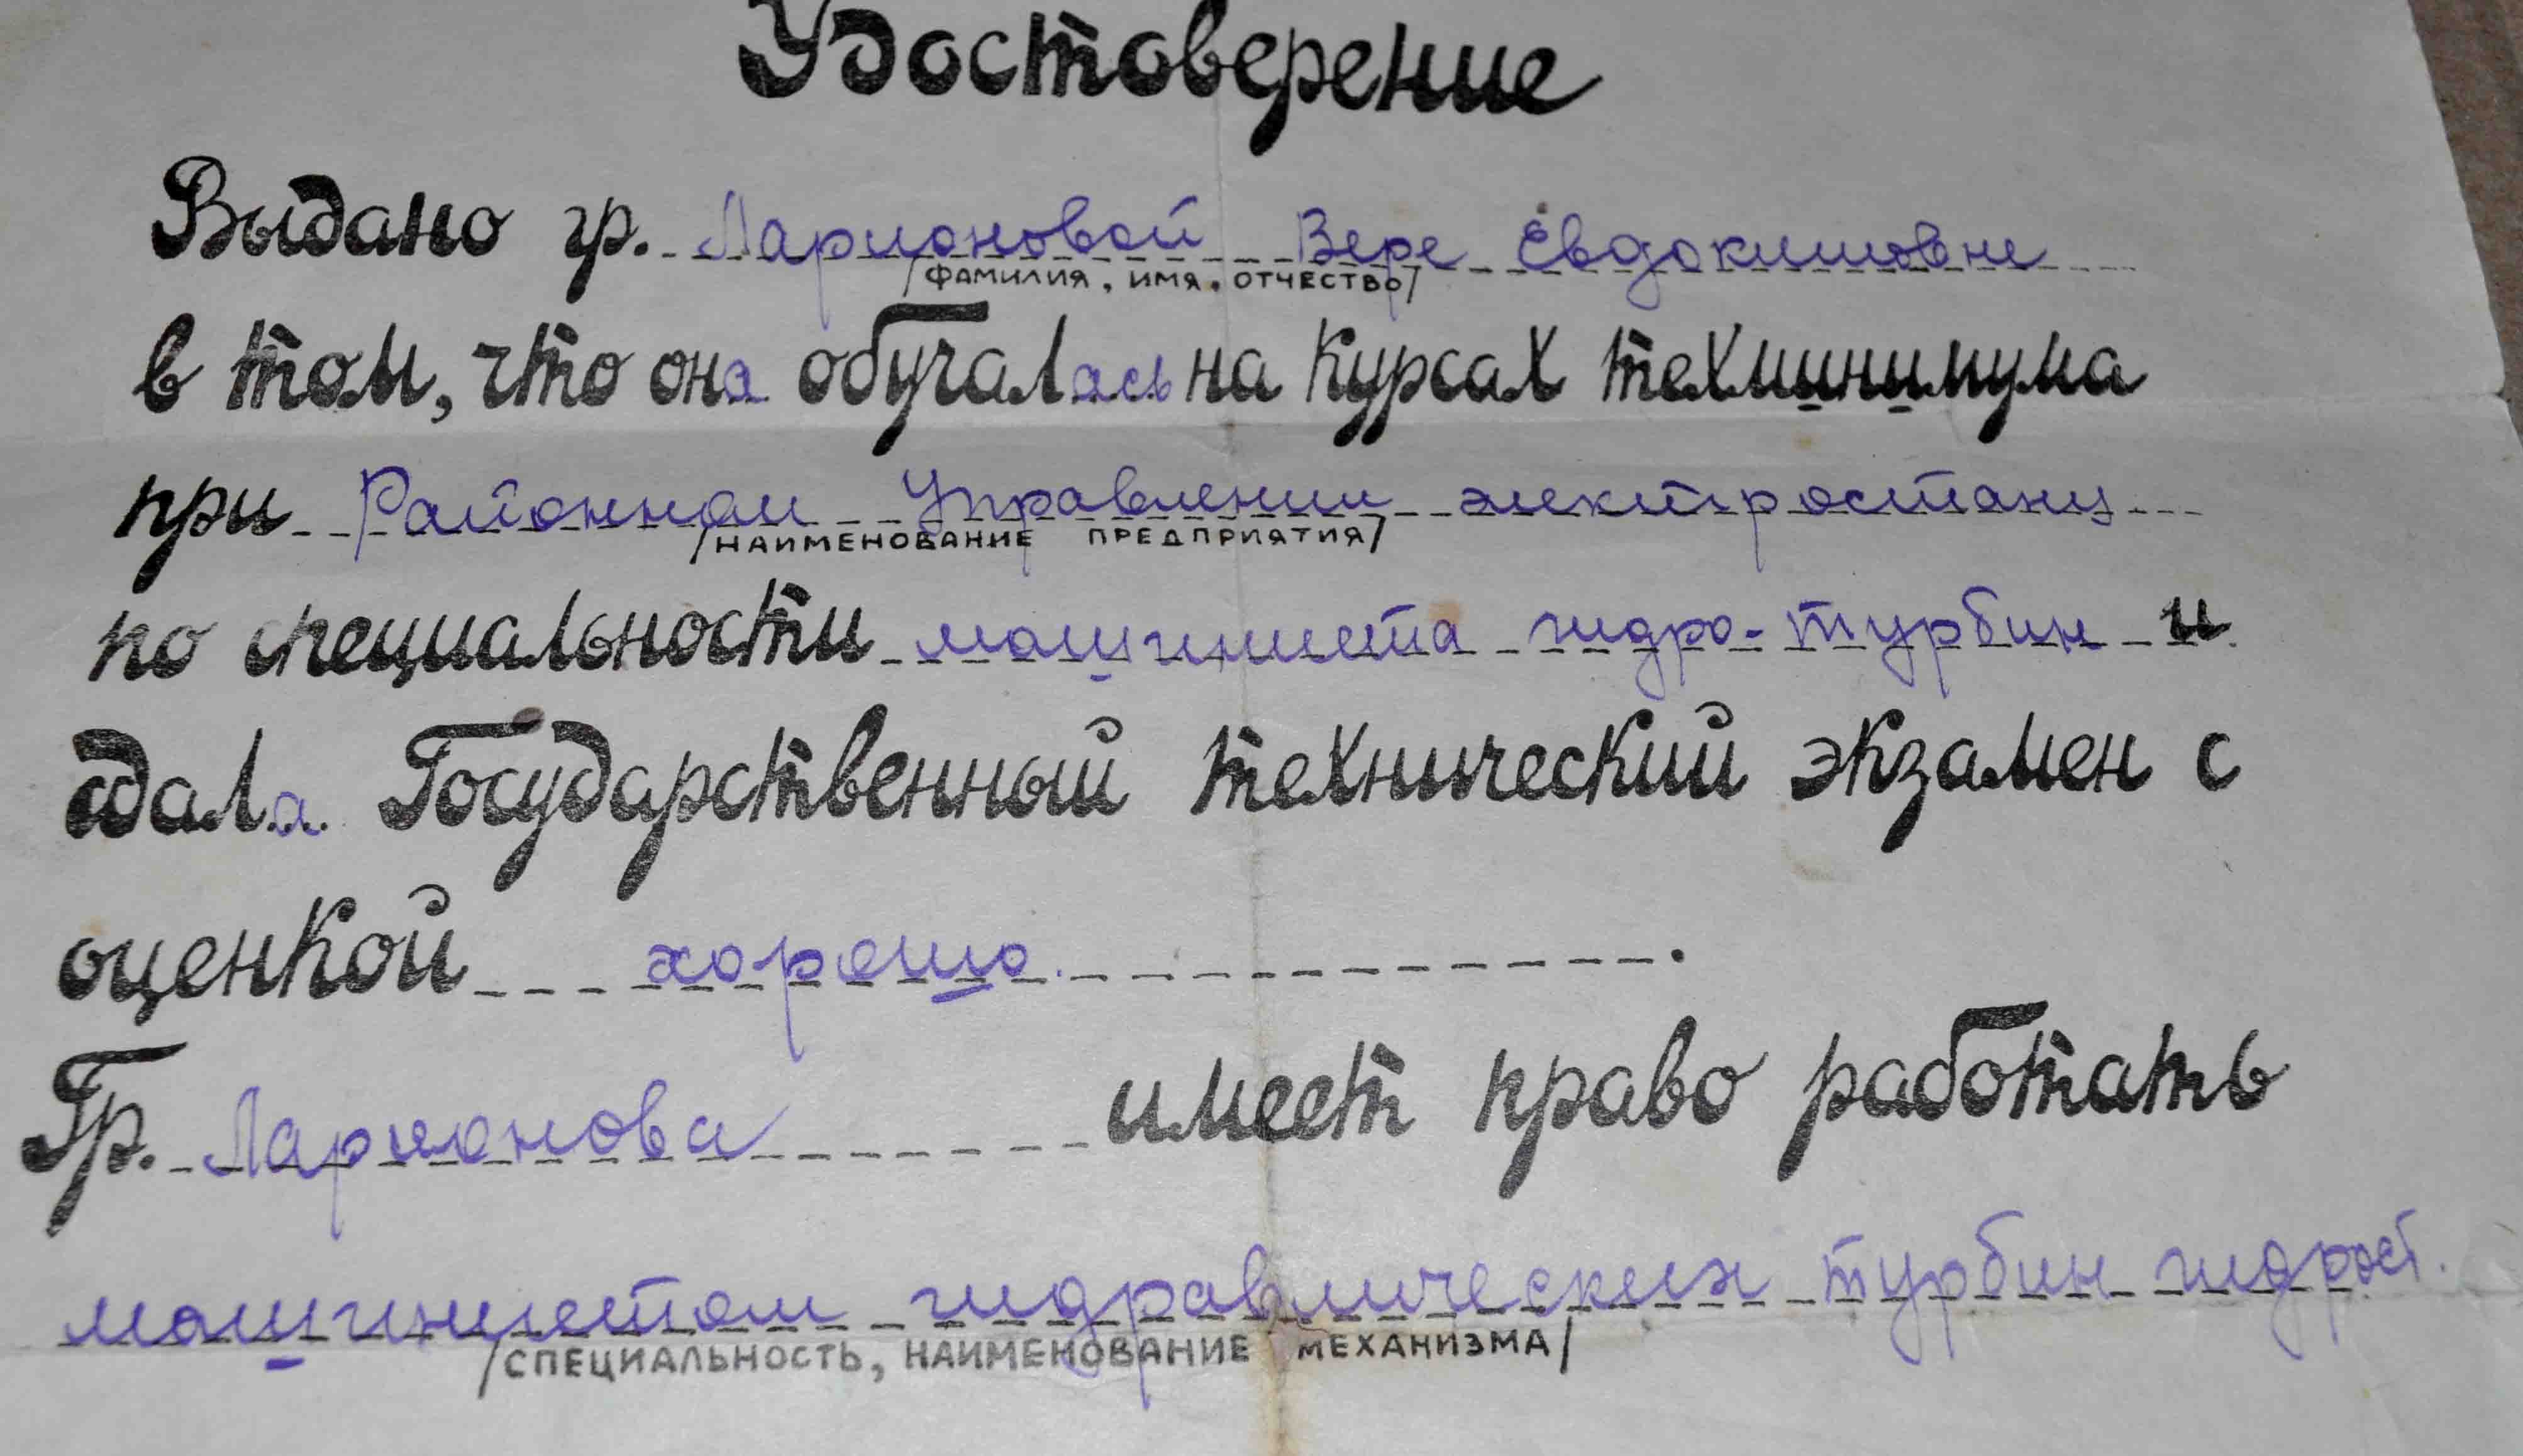 Удостоверение
Выдано гр. Ларионовой Вере Евдокимовне
/ФАМИЛИЯ, ИМЯ, ОТЧЕСТВО/
в том, что она обучалась на курсах техминимума
при Районном Управлении электростанц
/НАИМЕНОВАНИЕ ПРЕДПРИЯТИЯ/
по специальности машиниста гидро-турбин и
сдала Государственный технический экзамен с
оценкой хорошо.
Гр. Ларионова имеет право работать
машинистом гидравлических турбин гидрост.
/СПЕЦИАЛЬНОСТЬ, НАИМЕНОВАНИЕ МЕХАНИЗМА/